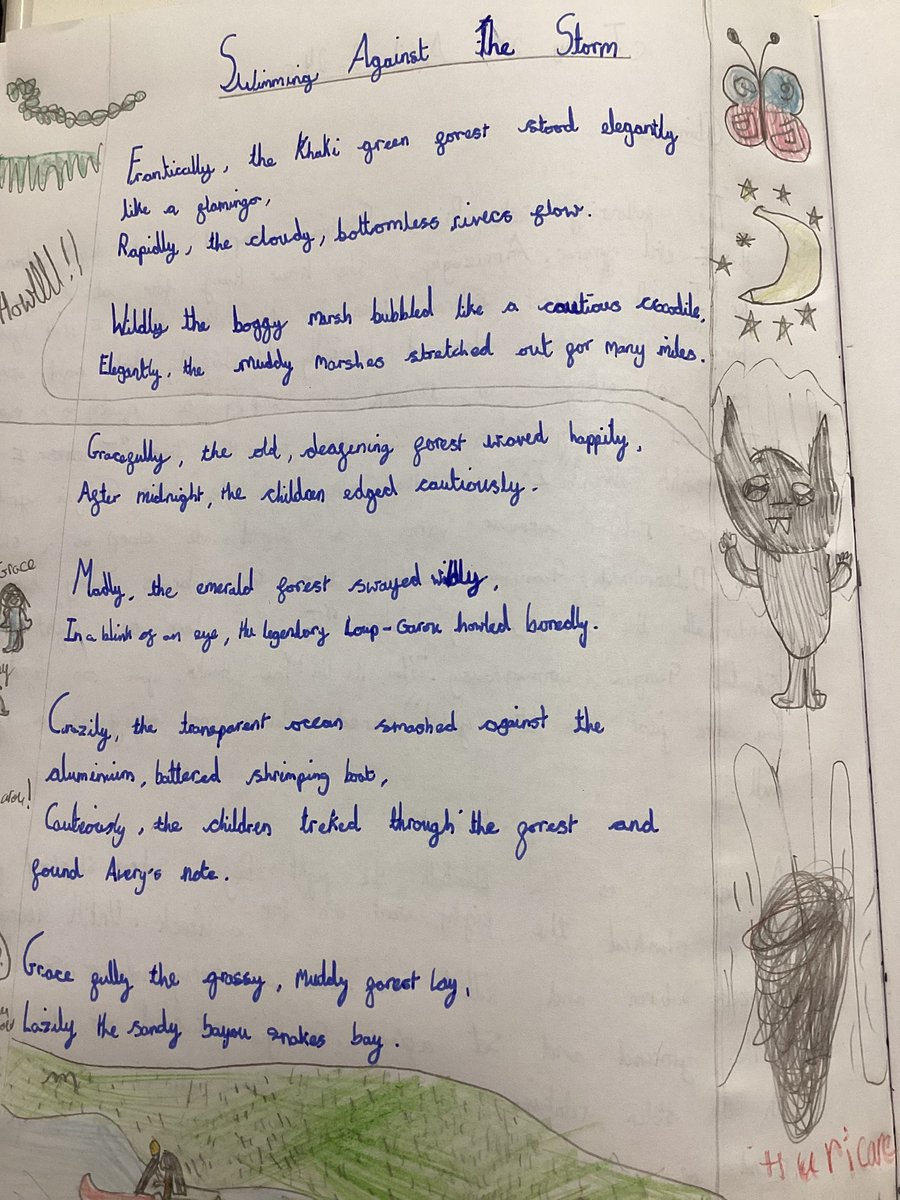 Swimming Against The Storm
Frantically, the Khaki green forest stood elegantly
like a flamingo,
Rapidly, the cloudy, bottomless rivers flow.
Howllll!!
Wildly the boggy marsh bubbled like a cautious crocodile,
Elegantly, the muddy marshes stretched out for many miles.
Gracefully, the old, deafening forest waved happily,
After midnight, the children edged cautiously.
Grace
Madly, the emerald forest swayed wildly,
In a blink of an eye, the legendary Loup-Garou howled boredly.
Crazily, the transparent ocean smashed against the
aluminium, battered shrimping boat,
Cauteously, the children treked through the forest and
found Avery's note.
Grace fully the grassy, muddy forest lay,
Lazily the sandy bayou snakes bay.
Huricane